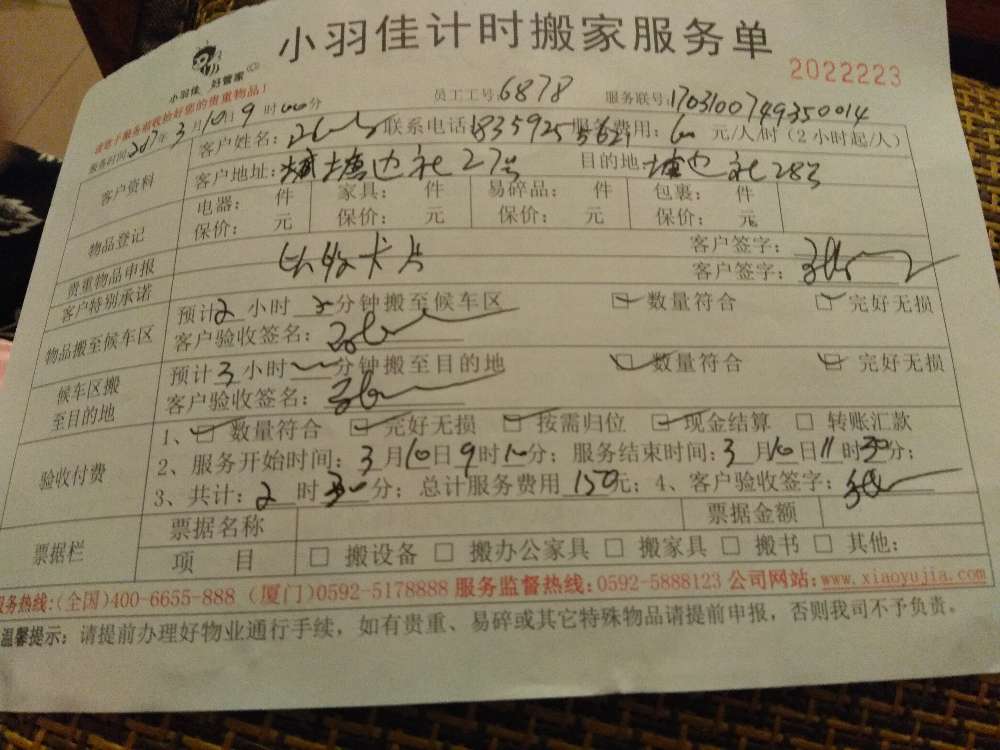 小羽佳计时搬家服务单
小羽佳 好管家
2022223
请您于服务前收拾好您的贵重物品！
员工工号: 6878 服务联号: 1703100749350014
服务时间: 2017年3月10日9时00分
客户资料
客户姓名: 联系电话: 18359255621 服务费用: 60 元/人/时（2小时起/人）
客户地址: 塘边社27号 目的地: 塘边社28号
物品登记
电器: 件 家具: 件 易碎品: 件 包裹: 件
保价: 元 保价: 元 保价: 元 保价: 元
贵重物品申报 客户签字:
客户特别承诺 卡片 客户签字:
物品搬至候车区
预计2小时 分钟搬至候车区 ☑ 数量符合 ☑ 完好无损
客户验收签名:
候车区搬至目的地
预计3小时 分钟搬至目的地 ☑ 数量符合 ☑ 完好无损
客户验收签名:
验收付费
1、☑ 数量符合 ☑ 完好无损 ☑ 按需归位 ☑ 现金结算 □ 转账汇款
2、服务开始时间: 3月10日9时10分；服务结束时间: 3月10日11时30分；
3、共计: 2时30分；总计服务费用150元；4、客户验收签字:
票据栏
票据名称 票据金额
项目 □ 搬设备 □ 搬办公家具 □ 搬家具 □ 搬书 □ 其他:
服务热线:(全国)400-6655-888 (厦门)0592-5178888 服务监督热线:0592-5888123 公司网站:www.xiaoyujia.com
温馨提示: 请提前办理好物业通行手续，如有贵重、易碎或其它特殊物品请提前申报，否则我司不予负责。